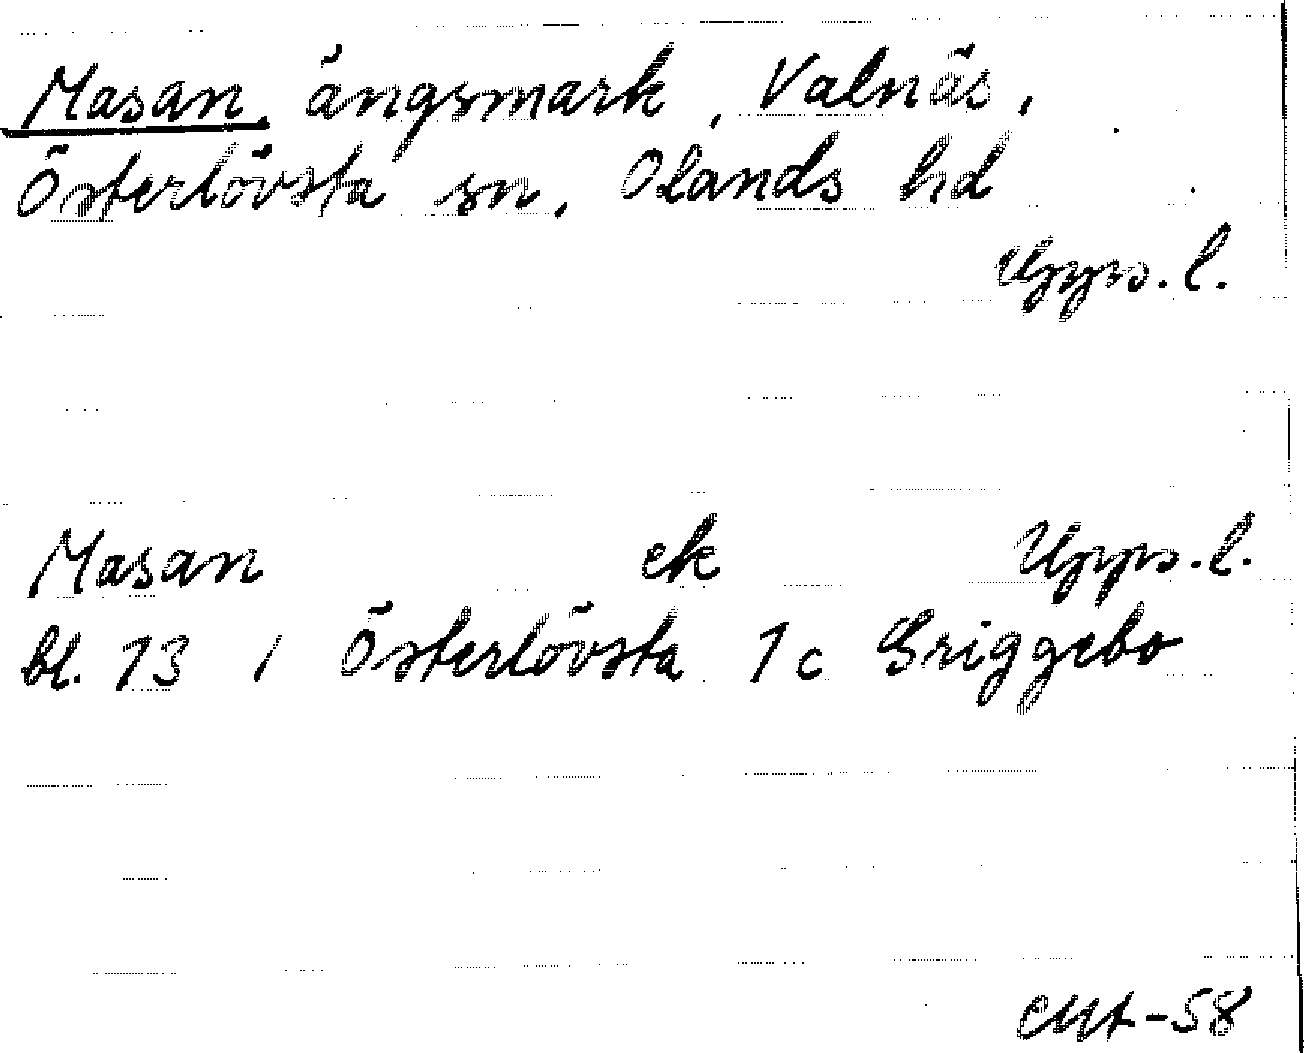 Masan, ängsmark, Valnäs,
Österlövsta sn, Olands hd
Upps. l.
Masan ek Upps. l.
bl. 13 i Österlövsta 1c Griggebo
-58